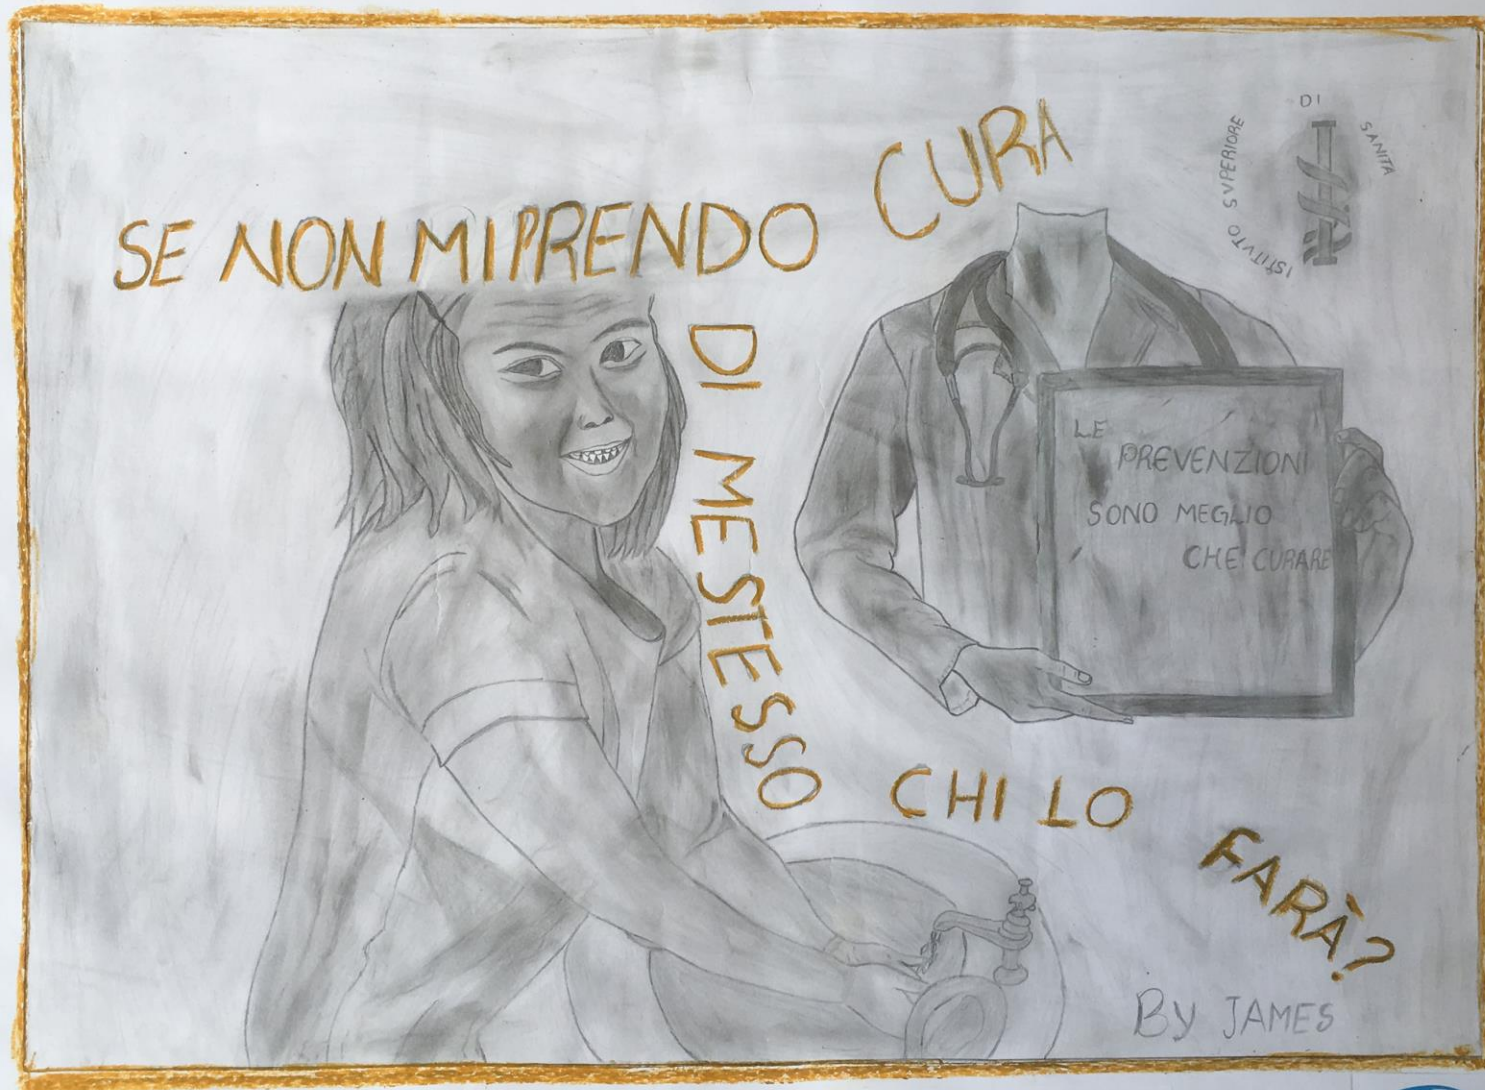 SE NON MI PRENDO CURA
DI ME STESSO
CHI LO FARÀ?
ISTITVTO SVPERIORE DI SANITA
LE
PREVENZIONI
SONO MEGLIO
CHE CURARE
By JAMES